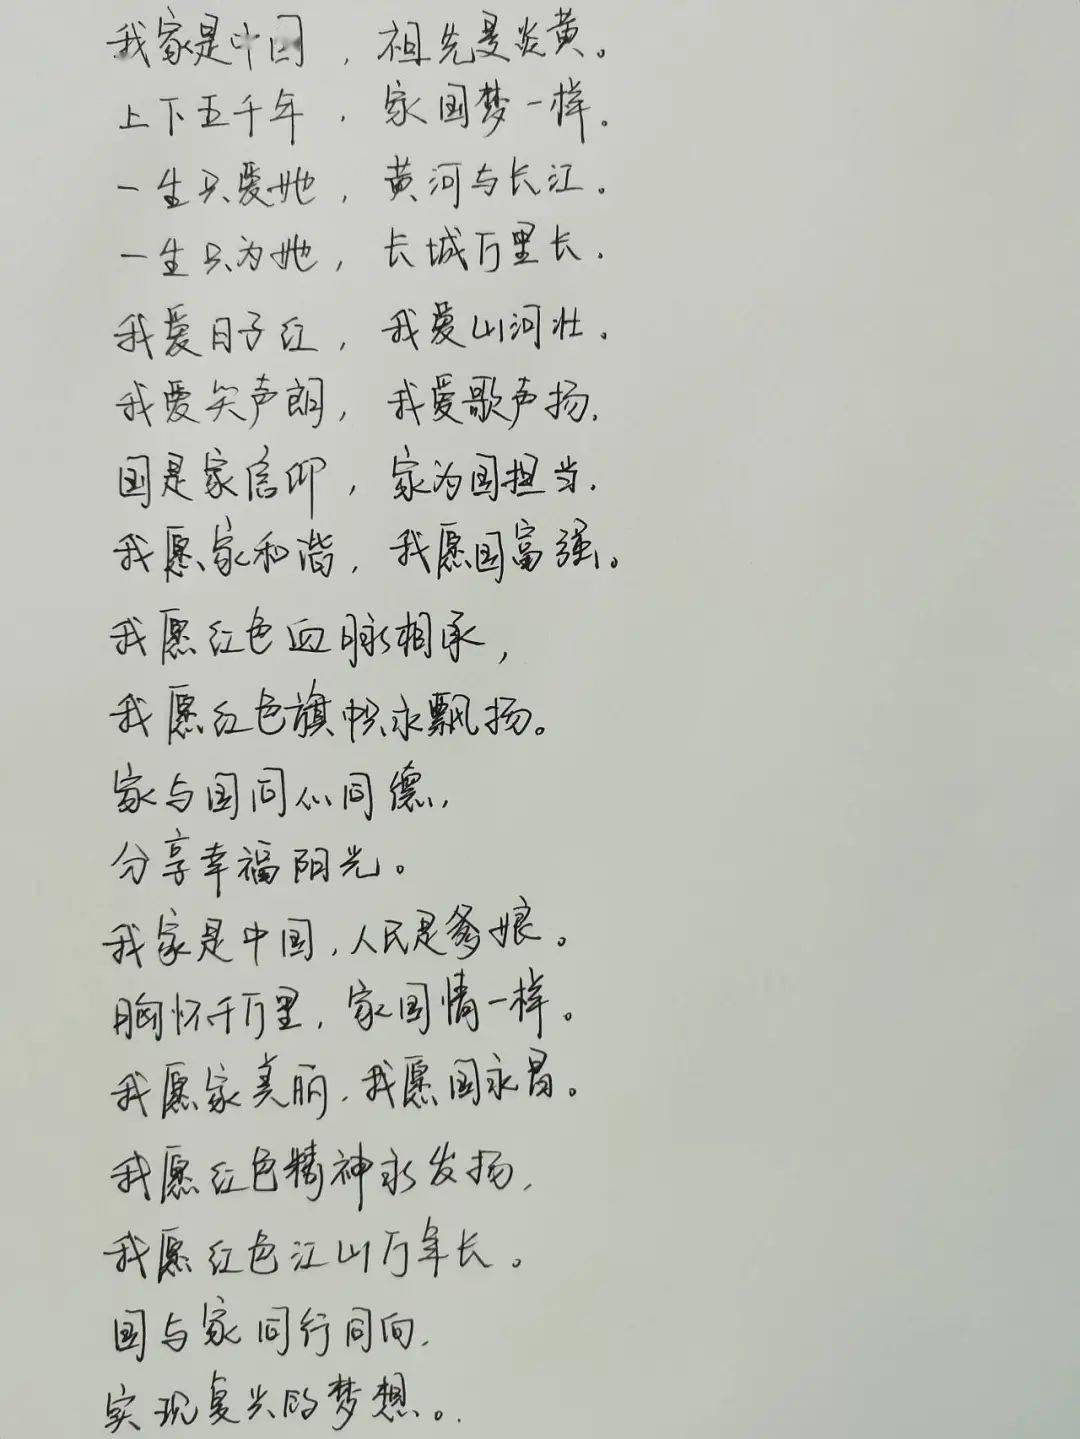 我家是中国，祖先是炎黄。
上下五千年，家国梦一样。
一生只爱她，黄河与长江。
一生只为她，长城万里长。
我爱日子红，我爱山河壮。
我爱笑声朗，我爱歌声扬。
国是家信仰，家为国担当。
我愿家和谐，我愿国富强。
我愿红色血脉相承，
我愿红色旗帜永飘扬。
家与国同心同德，
分享幸福阳光。
我家是中国，人民是爹娘。
胸怀千万里，家国情一样。
我愿家美丽，我愿国永昌。
我愿红色精神永发扬，
我愿红色江山万年长。
国与家同行同向，
实现复兴的梦想。.